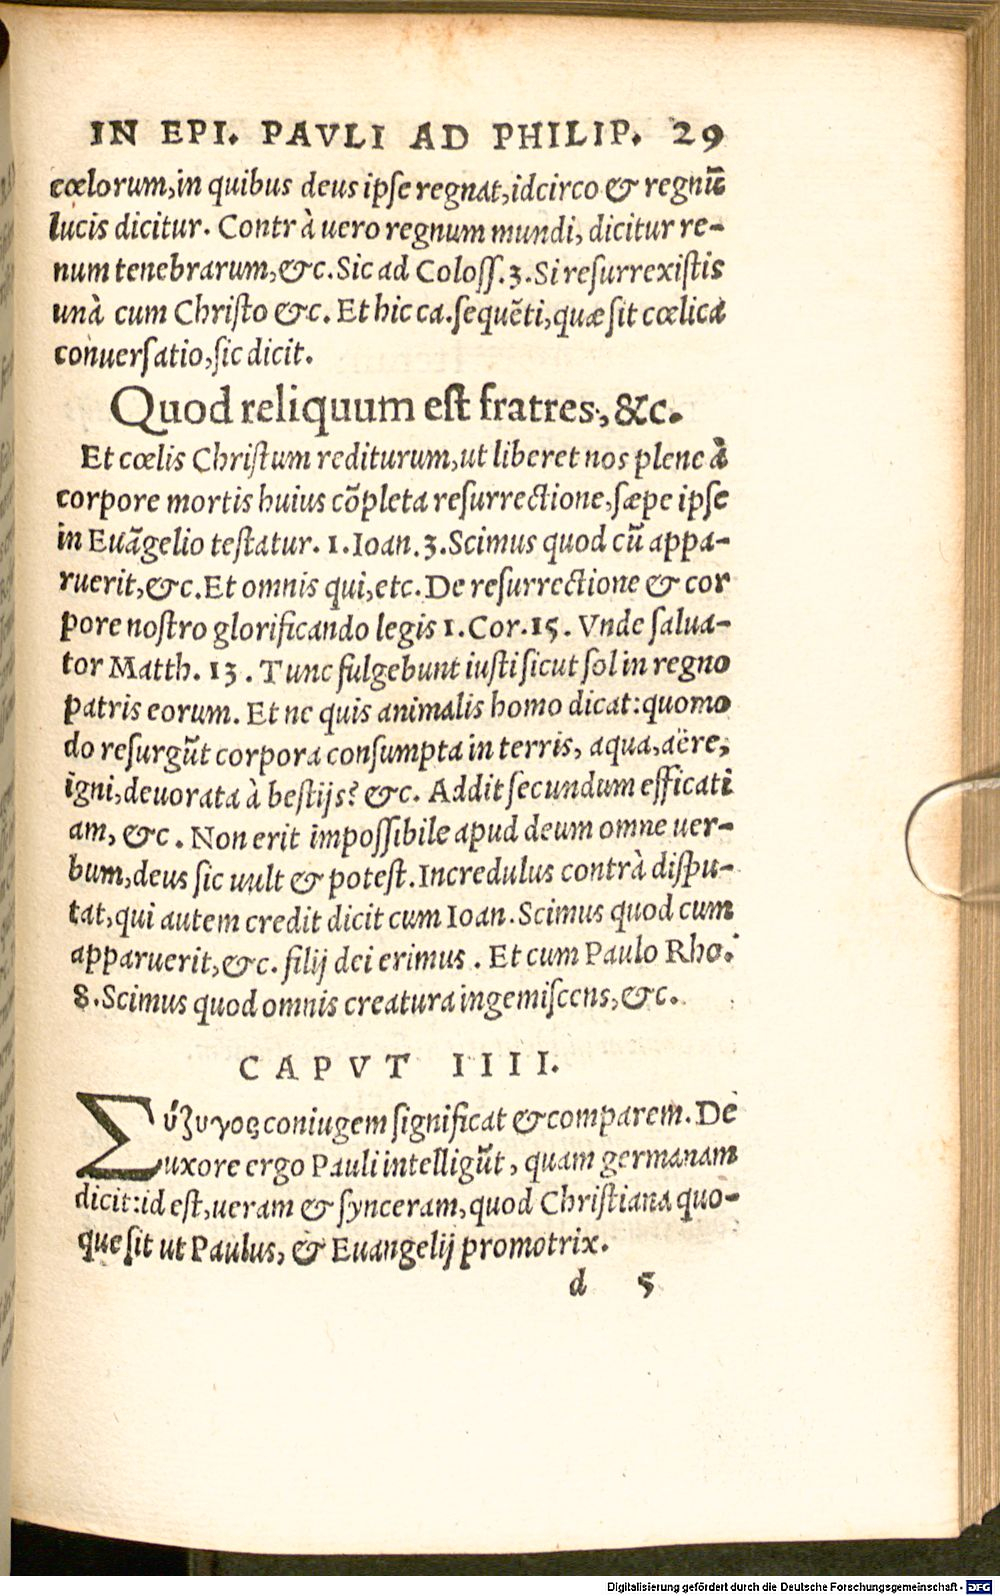 IN EPI. PAVLI AD PHILIP. 29
cœlorum, in quibus deus ipse regnat, idcirco & regnū
lucis dicitur. Contrà uero regnum mundi, dicitur re-
num tenebrarum, &c. Sic ad Coloss. 3. Si resurrexistis
unà cum Christo &c. Et hic ca. sequēti, quæ sit cœlica
conuersatio, sic dicit.
Quod reliquum est fratres, &c.
Et cœlis Christum rediturum, ut liberet nos plene à
corpore mortis huius cōpleta resurrectione, sæpe ipse
in Euāgelio testatur. 1. Ioan. 3. Scimus quod cū appa-
ruerit, &c. Et omnis qui, etc. De resurrectione & cor
pore nostro glorificando legis 1. Cor. 15. Vnde salua-
tor Matth. 13. Tunc fulgebunt iusti sicut sol in regno
patris eorum. Et ne quis animalis homo dicat: quomo
do resurgūt corpora consumpta in terris, aqua, aëre,
igni, deuorata à bestijs? &c. Addit secundum efficati
am, &c. Non erit impossibile apud deum omne uer-
bum, deus sic uult & potest. Incredulus contrà dispu-
tat, qui autem credit dicit cum Ioan. Scimus quod cum
apparuerit, &c. filij dei erimus. Et cum Paulo Rho.
8. Scimus quod omnis creatura ingemiscens, &c.
CAPVT IIII.
Σύζυγος coniugem significat & comparem. De
uxore ergo Pauli intelligūt, quam germanam
dicit: id est, ueram & synceram, quod Christiana quo-
que sit ut Paulus, & Euangelij promotrix.
d 5
Digitalisierung gefördert durch die Deutsche Forschungsgemeinschaft - DFG